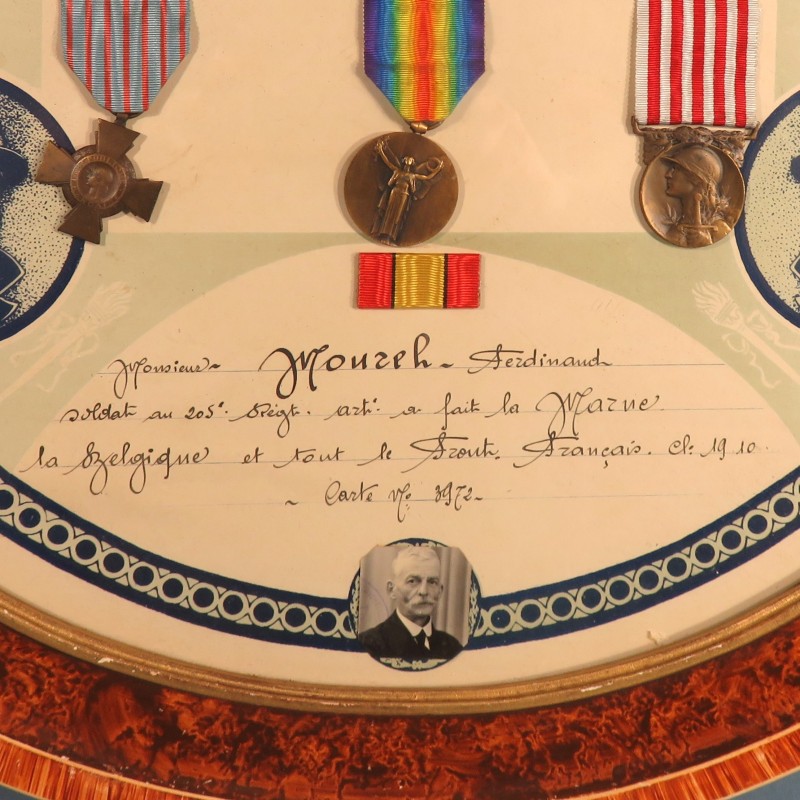 Monsieur Moureh Ferdinand
soldat au 205e. Régt. arti. a fait la Marne
la Belgique et tout le Front Français. Cl: 1910.
~ Carte No. 3972 ~